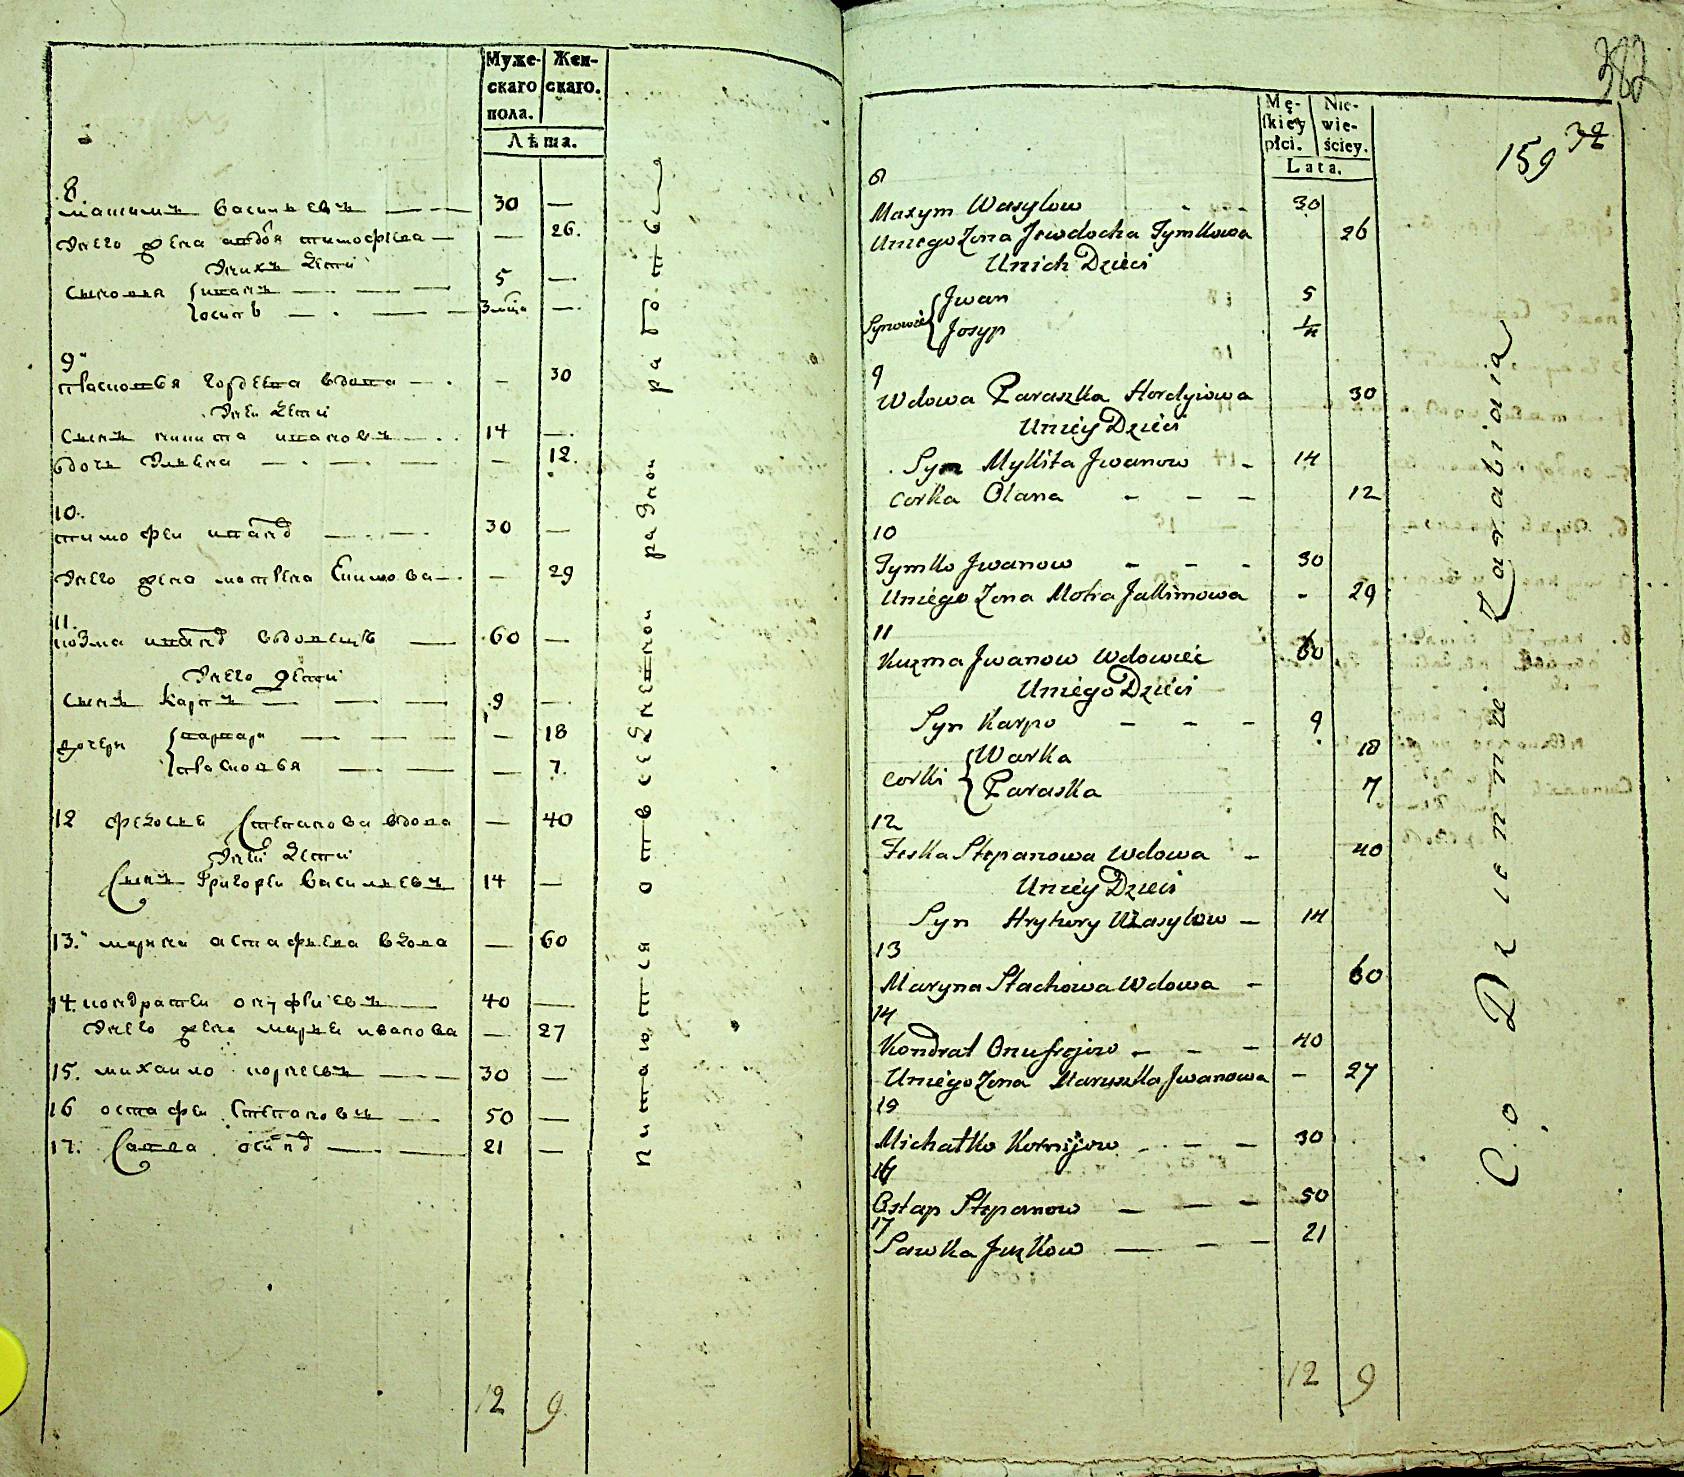 Муже-
скаго
пола.
Жен-
скаго.
Лѣта.
8.
Максимъ Васильевъ — — 30 —
Унего жена тимофѣева — — 26.
Унихъ дети
Сыновья иванъ — — — 5 —
осипъ — — — 3 —
9
Прасковья гордеева вдова — 30
Унеи дети
Сынъ никита ивановъ — 14 —
вдочь Ульяна — — — 12.
10.
тимофеи ивановъ — — 30 —
Унего жена матрена Екимова — — 29
11.
козма ивановъ вдовецъ — 60 —
Унего дети
Сынъ Карпъ — — — 9 —
дочери варвара — — — — 18
прасковья — — — 7.
12 федосья Степанова вдова — 40
Унеи дети
Сынъ Григореи Васильевъ 14 —
13. марина астафьева вдова — 60
14. кондратеи онуфриевъ — 40 —
Унего жена марья иванова — 27
15. михаило корнеевъ — — 30 —
16 остафеи Степановъ — 50 —
17. Савва осиповъ — — 21 —
12 9
Питаются отъ вседневной разной работы
382
159 32
Mę-
skiey
płci.
Nie-
wie-
ściey.
Lata.
8
Maxym Wasylow - - 30
Uniego Zona Jewdocha Tymkowa 26
Unich Dzieci
Synowie Jwan 5
Josyp
9
Wdowa Paraszka Hordyiowa 30
Uniey Dzieci
Syn Mykita Jwanow - 14
Corka Olana - - - 12
10
Tymko Jwanow - - - 30
Uniego Zona Motra Jakimowa - 29
11
Kuzma Jwanow Wdowiec 60
Uniego Dzieci
Syn Karpo - - - 9
Corki Warka 18
Paraska 7
12
Feska Stepanowa Wdowa - 40
Uniey Dzieci
Syn Hryhory Wasylow - 14
13
Maryna Stachowa Wdowa - 60
14
Kondrat Onufrejow - - - 40
Uniego Zona Maryszka Jwanowa - 27
15
Michałko Kornijow - - - 30
16
Ostap Stepanow - - - 50
17
Sawka Juzkow - - - 21
12 9
Co Dziennie Zarabiaia